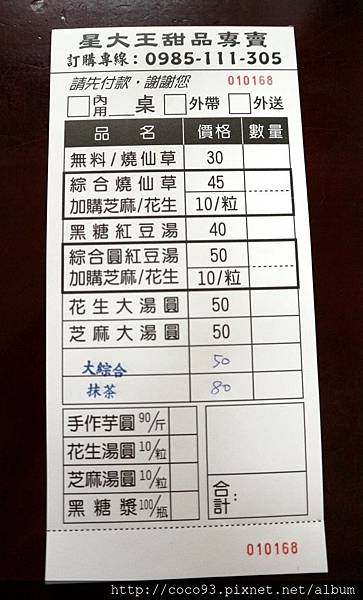 星大王甜品專賣
訂購專線：0985-111-305
請先付款，謝謝您 010168
內用 桌 外帶 外送
品名 價格 數量
無料/燒仙草 30
綜合燒仙草 45
加購芝麻/花生 10/粒
黑糖紅豆湯 40
綜合圓紅豆湯 50
加購芝麻/花生 10/粒
花生大湯圓 50
芝麻大湯圓 50
大綜合 50
抹茶 80
手作芋圓 90/斤
花生湯圓 10/粒
芝麻湯圓 10/粒
黑糖漿 100/瓶
合計：
010168
http://coco93.pixnet.net/album